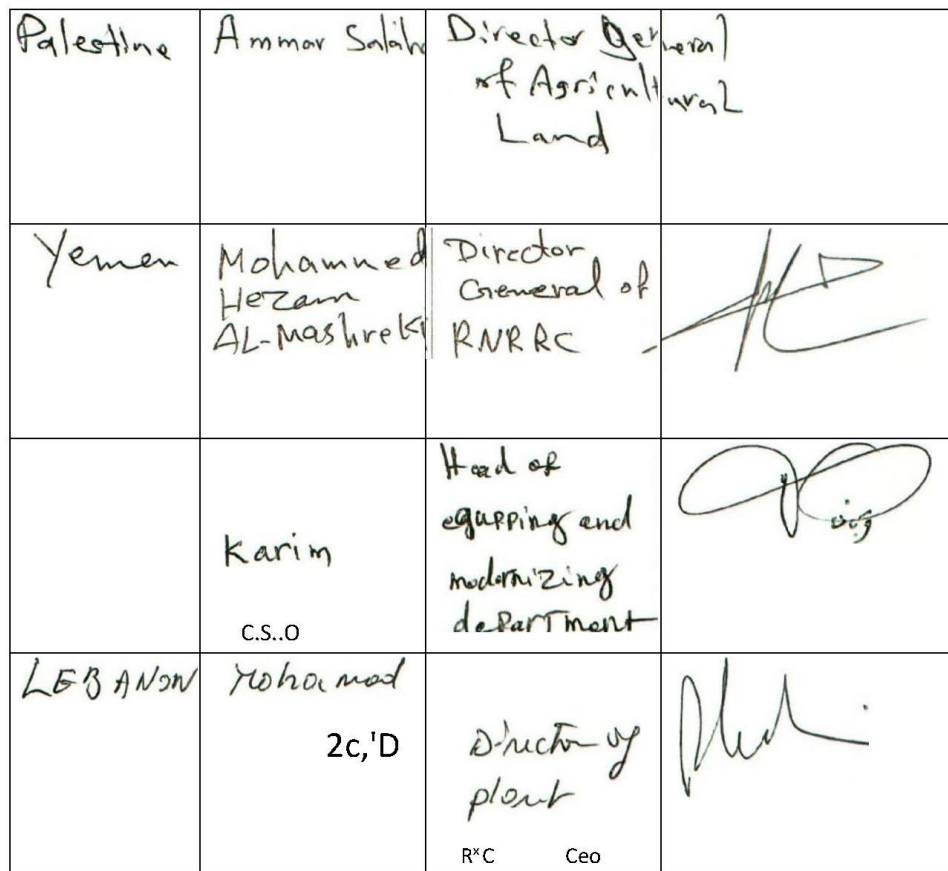 Palestine
Ammar Salah
Director General
of Agricultural
Land
Yemen
Mohammed
Hezam
AL-Mashreki
Director
General of
RNRRC
Karim
C.S..O
Head of
equpping and
modernizing
department
LEBANON
Mohamad
2c,'D
Director of
plant
RˣC Ceo